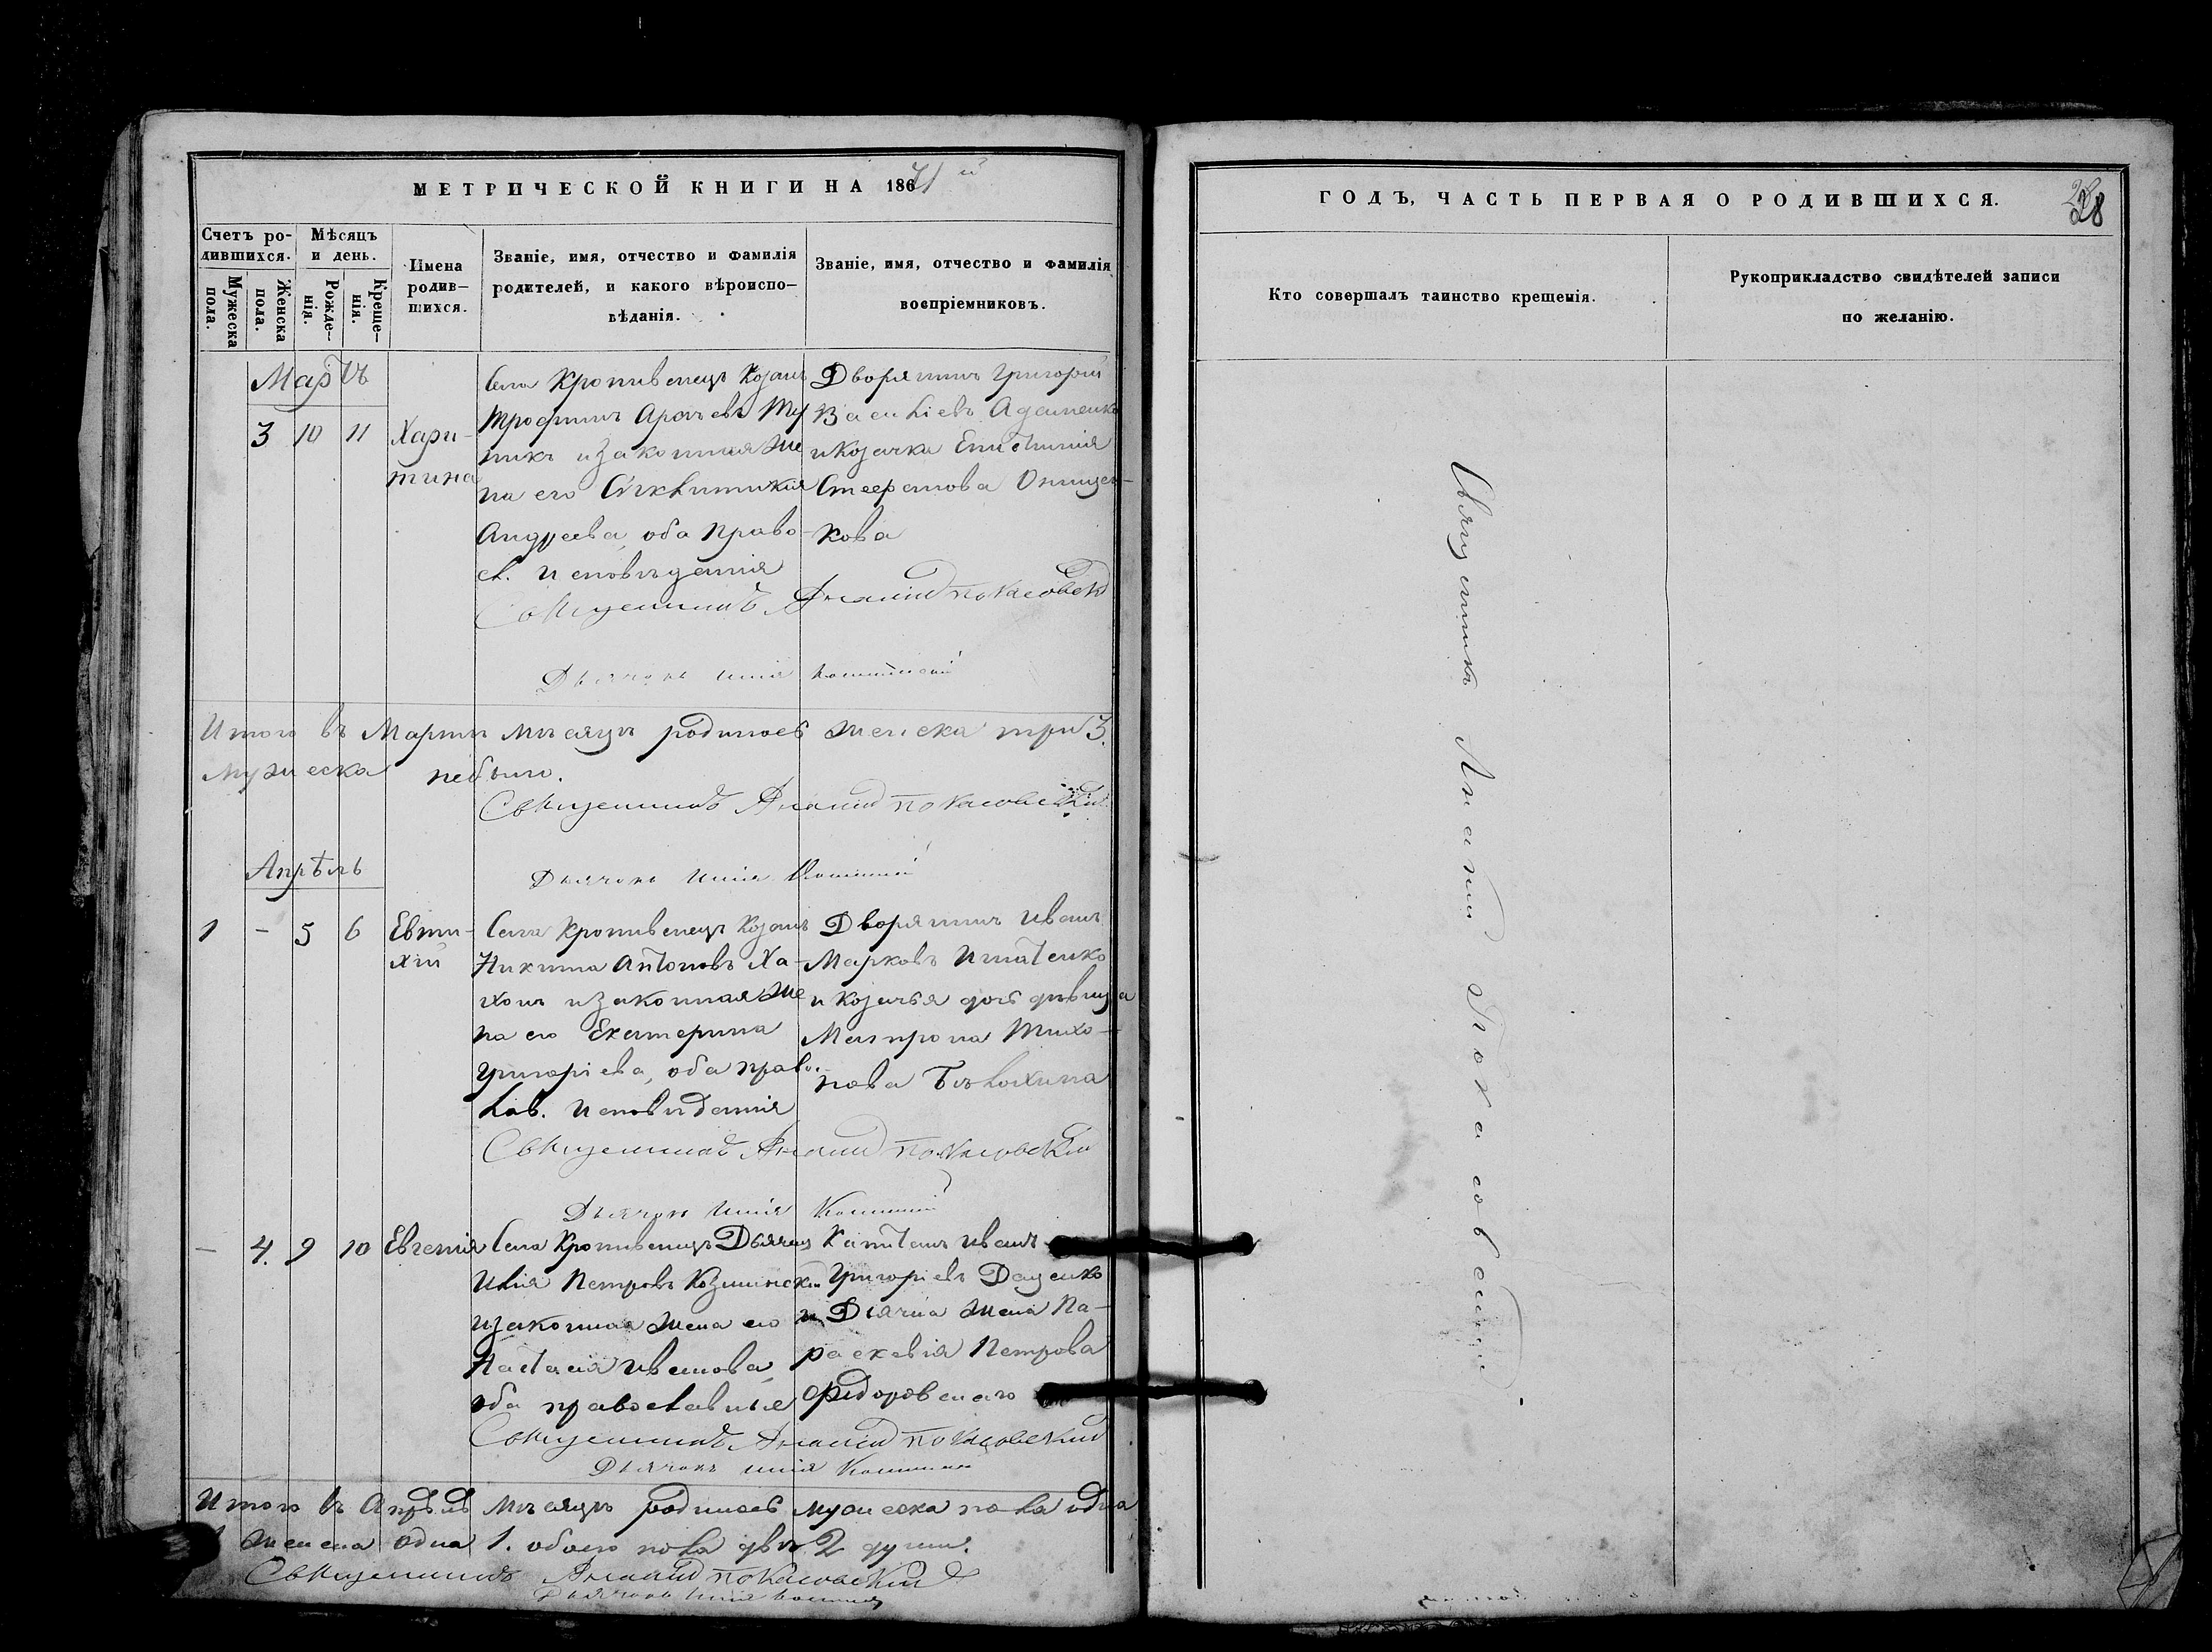 МЕТРИЧЕСКОЙ КНИГИ НА 1871 й
Счетъ родившихся.
Мужеска пола.
Женска пола.
Мѣсяцъ и день.
Рожденія.
Крещенія.
Имена родив-
шихся.
Званіе, имя, отчество и фамилія
родителей, и какого вѣроиспо-
вѣданія.
Званіе, имя, отчество и фамилія
воспріемниковъ.
Мартъ
3 10 11 Хари-
тина
Села Кропивенецъ Козакъ
Трофимъ
и законная же
на его
Андреева, оба право
сл. исповѣданія
Дворянинъ Григорій
Васильевъ Адаменко
и Козачка Епистимія
Стефанова Онищен-
кова
Священникъ Ананій Покасовскій
Дьячокъ Илія
Итого въ Мартѣ мѣсяцѣ родилось женска три 3.
Мужеска небыло.
Священникъ Ананій Покасовскій
Дьячокъ Илія
Апрѣль
1 - 5 6 Евти-
хій
Села Кропивенецъ Козакъ
Никита Антоновъ Ха-
и законная же
на его Екатерина
Григоріева, оба право.
слав. исповѣданія
Дворянинъ Иванъ
Марковъ Игнатенко
и Козачья дочь дѣвица
Матрона Тихо-
нова
Священникъ Ананій Покасовскій
Дьячокъ Илія
- 4. 9 10 Евгенія
Села Кропивенецъ Дьячекъ
Илія Петровъ
и законная жена его
Настасія Иванова,
оба православные
Капитанъ Иванъ
Григоріевъ Даценко
и Діячка жена Па-
раскевія Петрова
Федоровскаго
Священникъ Ананій Покасовскій
Дьячокъ Илія
Итого въ Апрѣлѣ мѣсяцѣ родилось мужеска пола одна
1 женска одна 1. обоего пола двѣ 2 души.
Священникъ Ананій Покасовскій
Дьячокъ Илія
ГОДЪ, ЧАСТЬ ПЕРВАЯ О РОДИВШИХСЯ.
28
Кто совершалъ таинство крещенія.
Рукоприкладство свидѣтелей записи
по желанію.
Священникъ Ананій Покасовскій